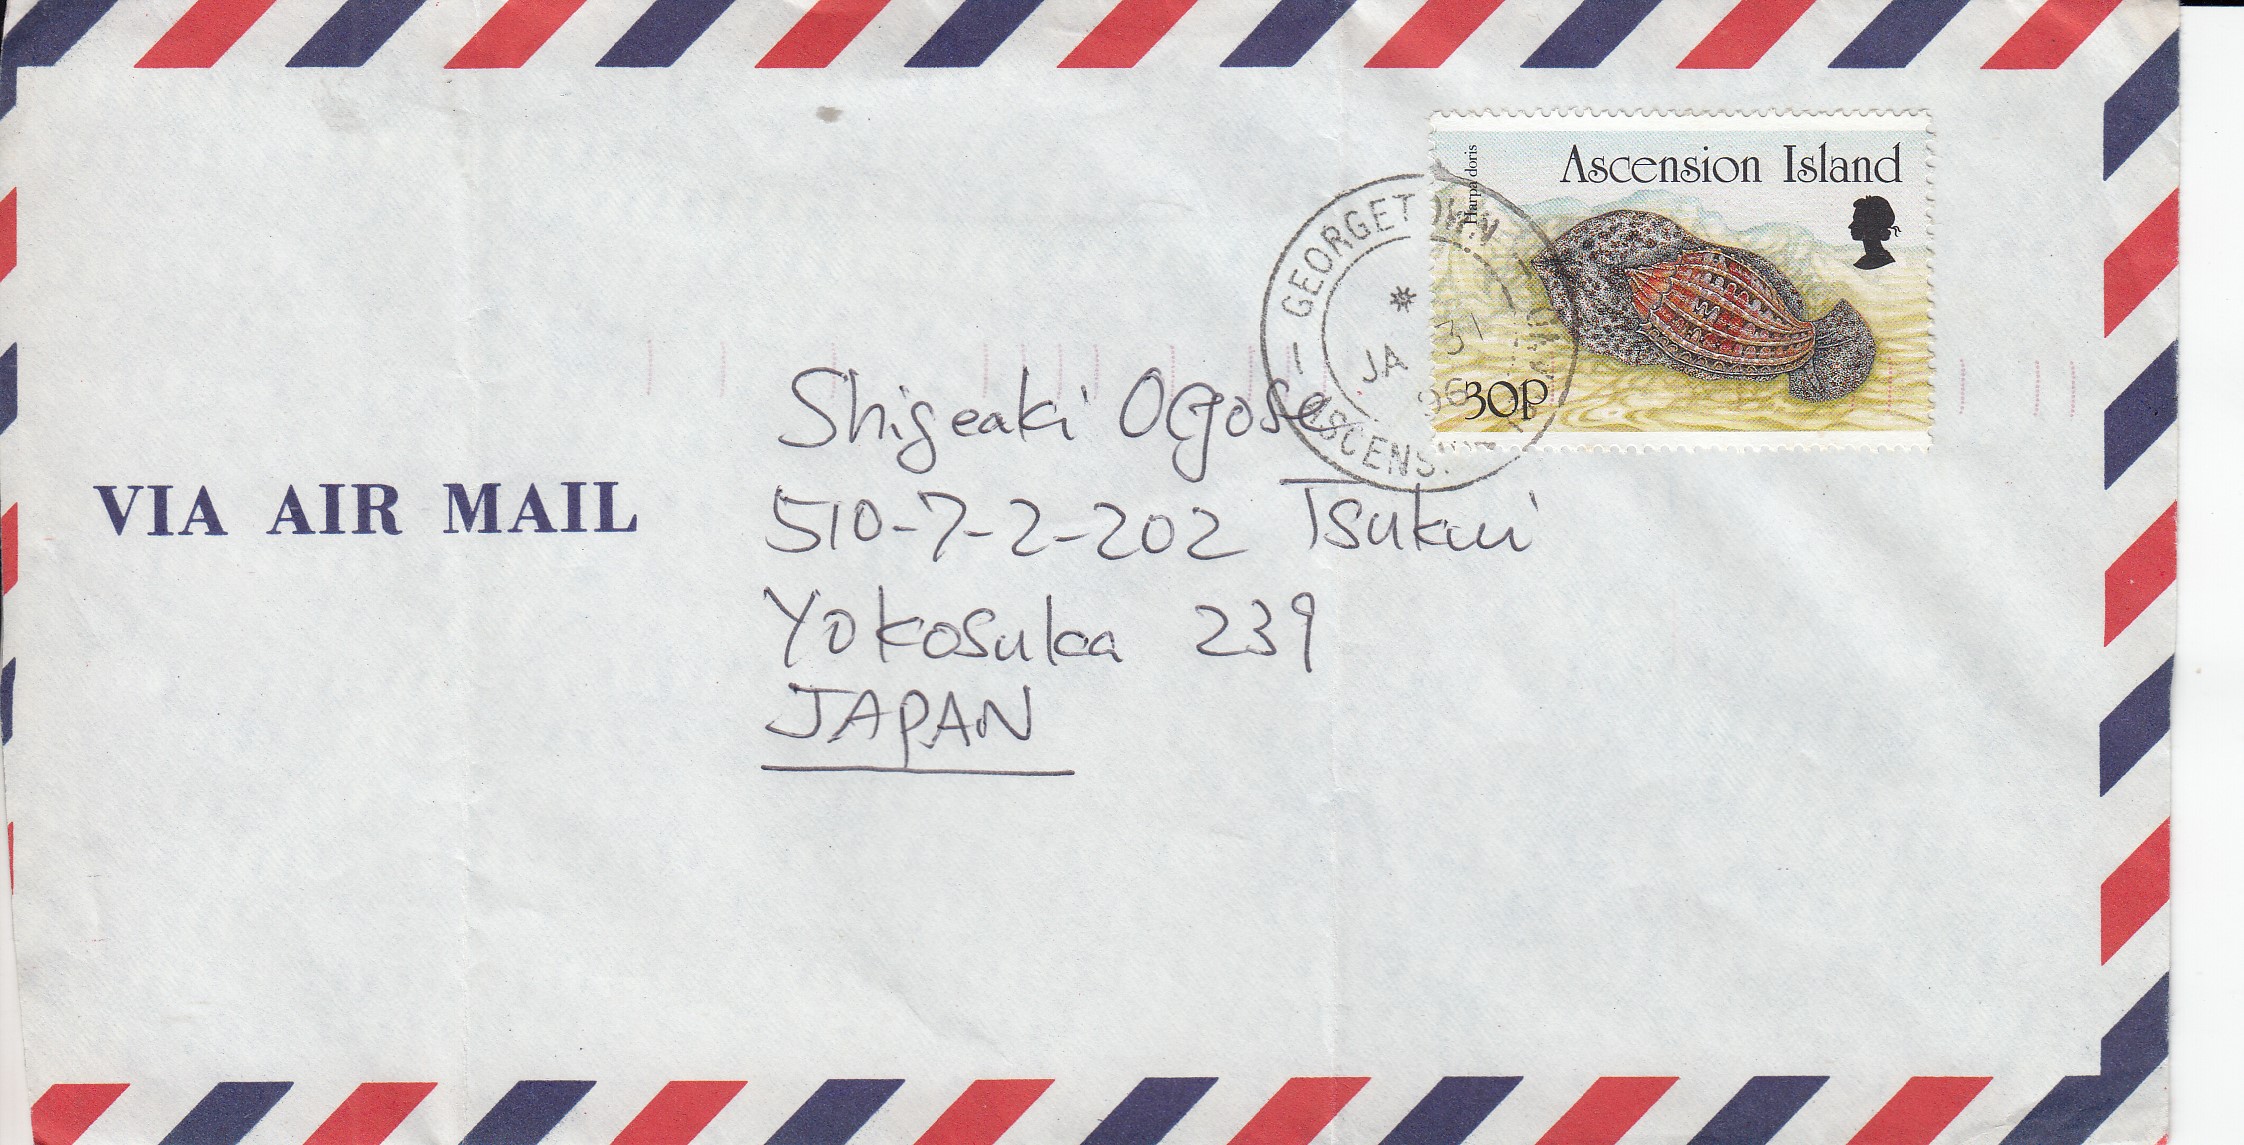 Ascension Island
Harpa doris
30p
GEORGETOWN
JA 31
96
VIA AIR MAIL
Shigeaki Ogose
510-7-2-202 Tsukui
Yokosuka 239
JAPAN